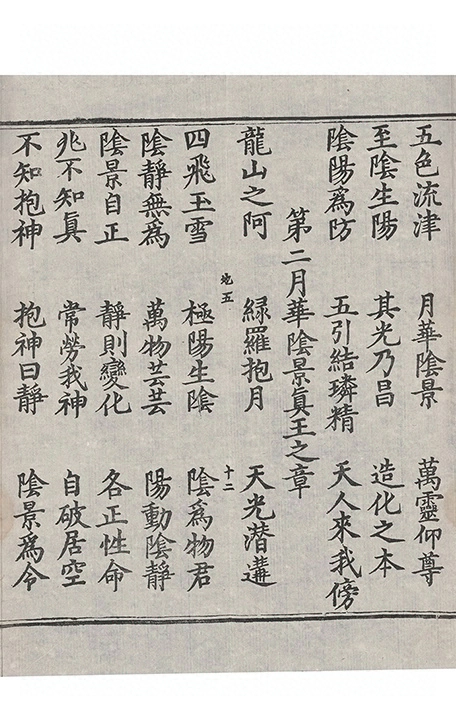 五色流津 月華陰景 萬靈仰尊
至陰生陽 其光乃昌 造化之本
陰陽爲防 五引結璘精 天人來我傍
第二月華陰景眞王之章
龍山之阿 緑羅抱月 天光潛遘
五 十二
四飛玉雪 極陽生陰 陰爲物君
陰靜無爲 萬物芸芸 陽動陰靜
陰景自正 靜則變化 各正性命
兆不知眞 常勞我神 自破居空
不知抱神 抱神曰靜 陰景爲令